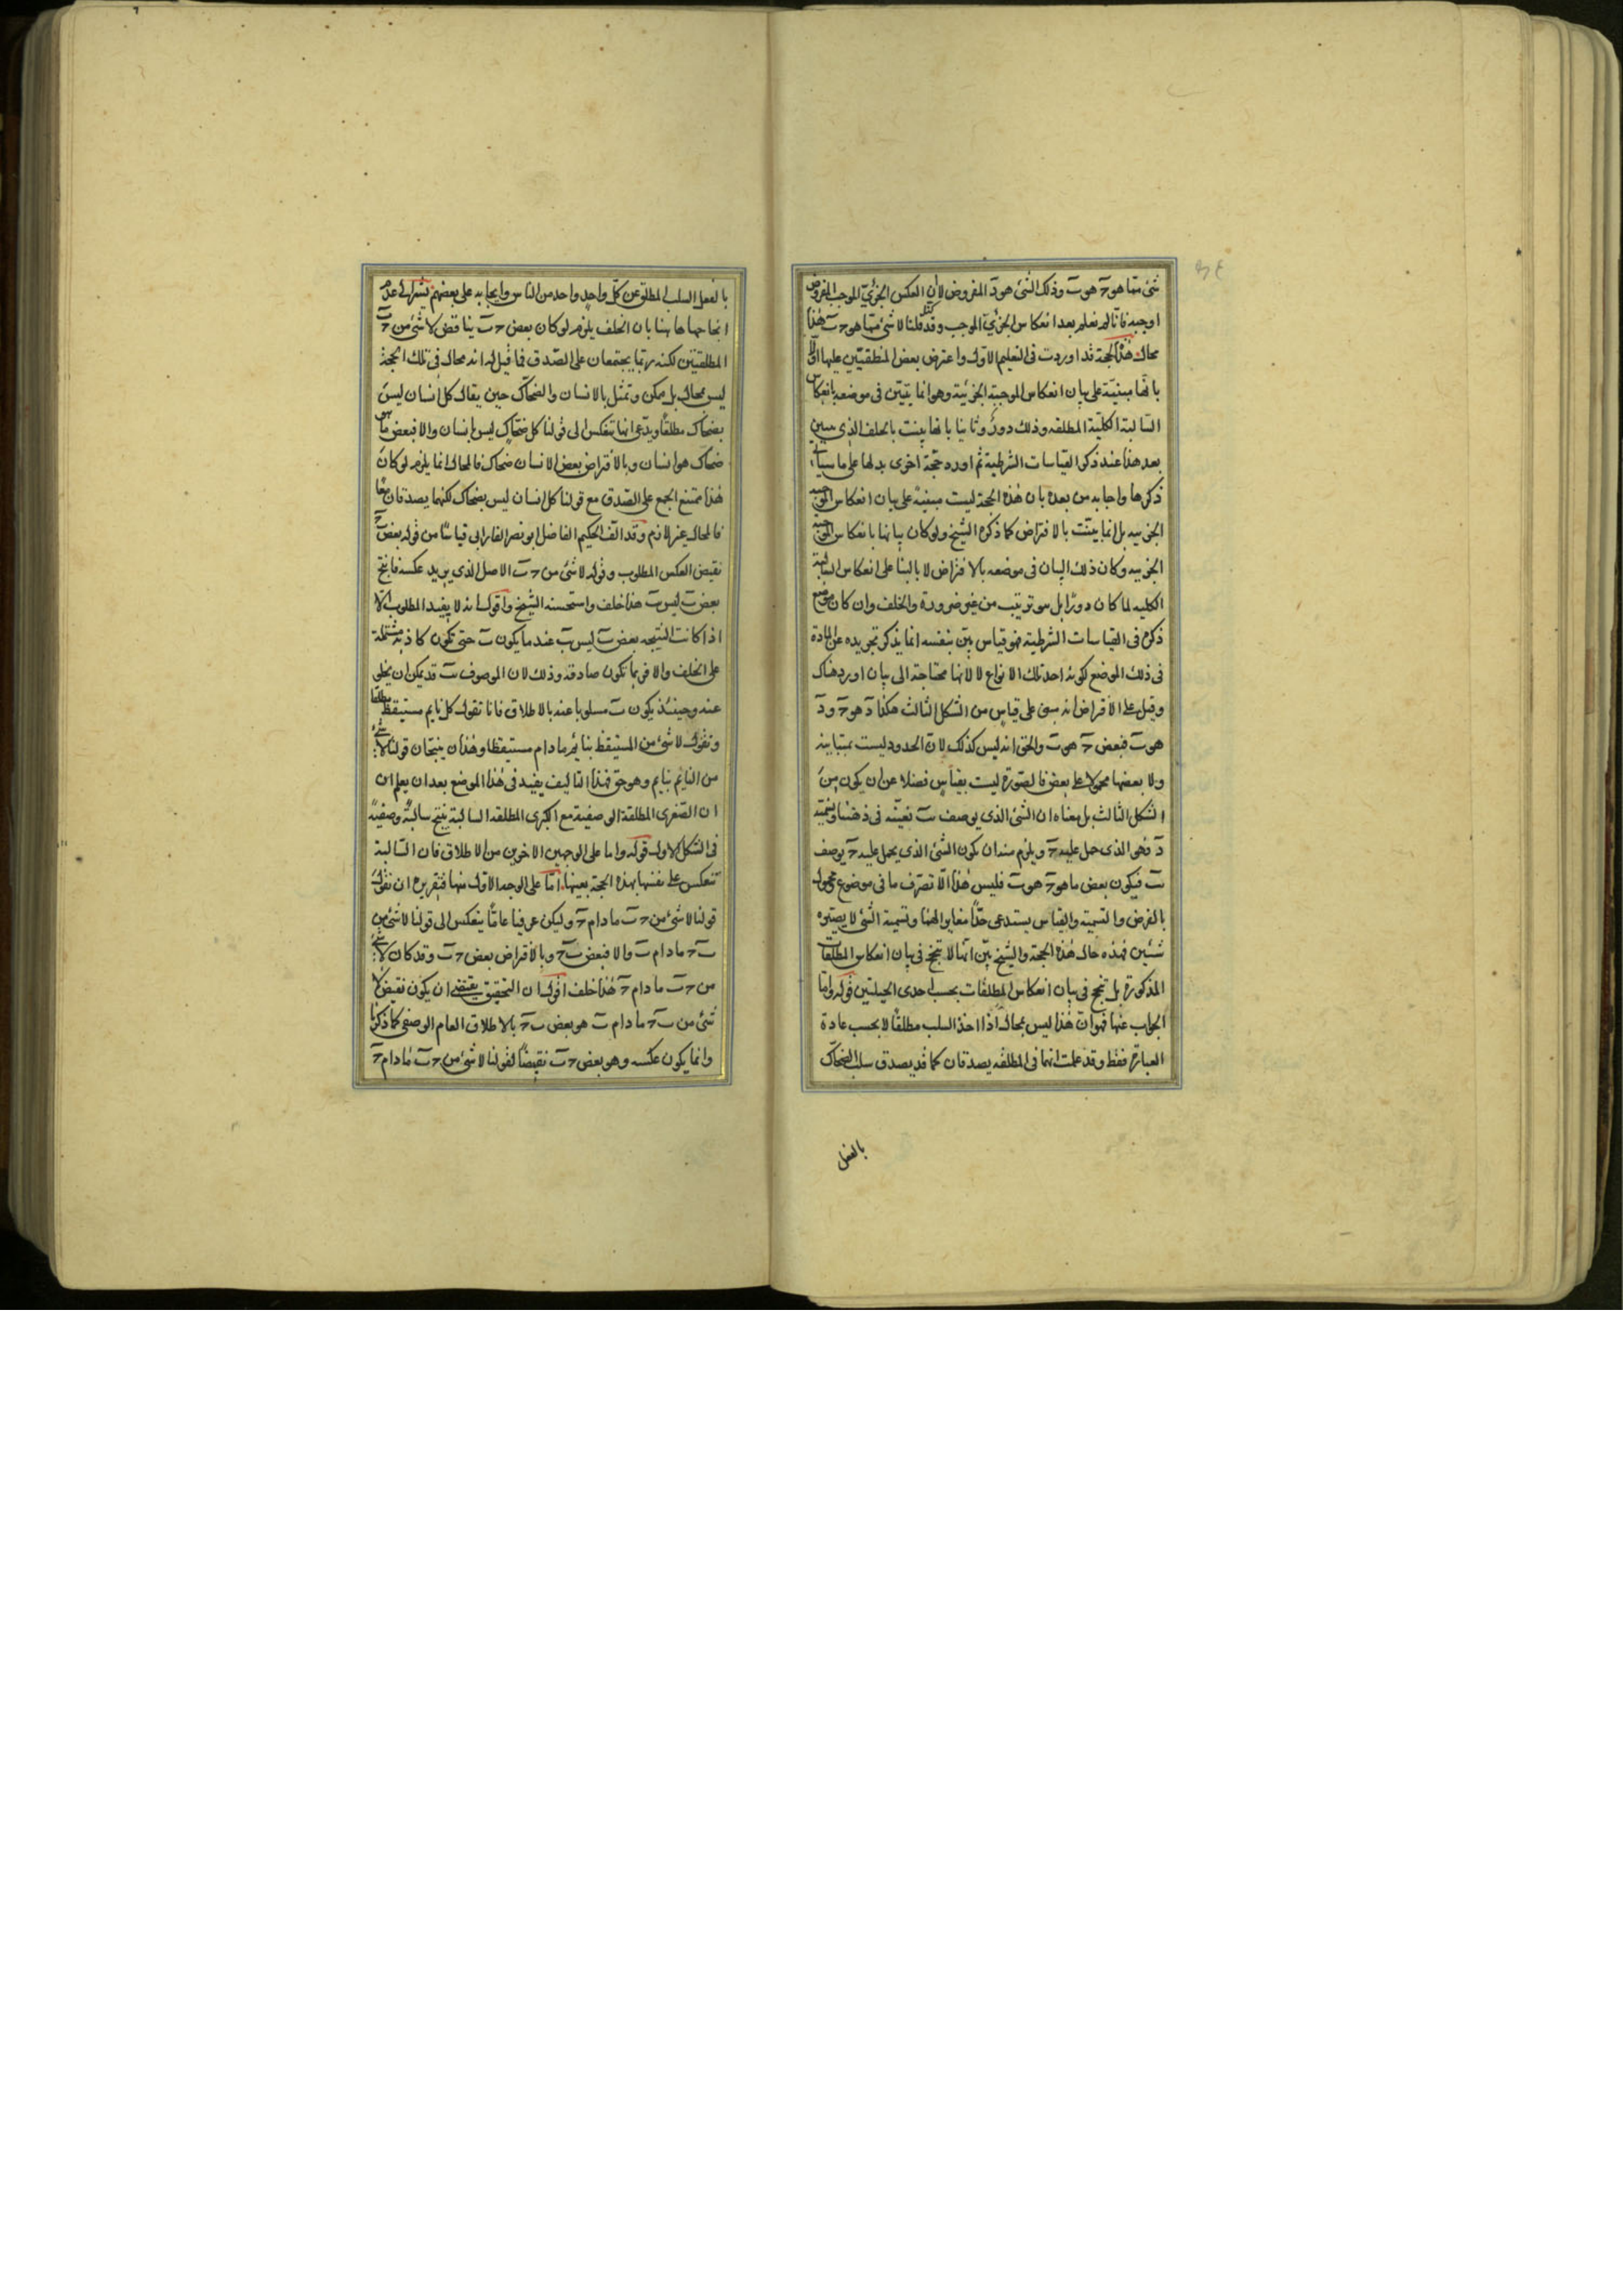 شئ مما هو حَ هو بَ وذلك الشئ هو دَ المفروض لان العكس الجزئى الموجب المفروض
اوجبه فانا لم نعلم بعد انعكاس الجزئى الموجب وقد كنا قلنا لا شئ مما هو حَ بَ هذا
محال هذه الحجة قد اوردت فى التعليم الاول واعترض بعض المنطقيين عليها اولا
بانها مبنية على بيان انعكاس الموجبة الجزئية وهو انما يتبين فى موضعه بانعكاس
السالبة الكلية المطلقه وذلك دور وثانيا بانها بينت بالخلف الذى سيبين
بعد هذا عند ذكر القياسات الشرطية ثم اورد حجة اخرى بدلها على ما سياتى
ذكرها واجابه من بعده بان هذه الحجة ليست مبنية على بيان انعكاس الموجبه
الجزييه بل انما بينت بالافتراض كما ذكره الشيخ ولو كان بيانها بانعكاس الموجبه
الجزييه وكان ذلك البيان فى موضعه بالافتراض لا بالبنا على انعكاس السالبة
الكليه لما كان دورا بل سو ترتيب من غير ضرورة والخلف وان كان موضع
ذكره فى القياسات الشرطيه فهو قياس بين بنفسه انما يذكر تجريده عن المادة
فى ذلك الموضع لكونه احد تلك الانواع لا لانها محتاجة الى بيان اورد هناك
وقيل على الافتراض انه مبنى على قياس من الشكل الثالث هكذا دَ هو حَ ودَ
هو بَ فبعض حَ هو بَ والحق انه ليس كذلك لان الحدود ليست بمتباينه
ولا بعضها محمولا على بعض فالصورة ليست بقياس فضلا عن ان يكون من
الشكل الثالث بل معناه ان الشئ الذى يوصف بَ نعينه فى ذهننا ونسميه
دَ فهو الذى حمل عليه حَ ويلزم منه ان يكون الشئ الذى يحمل عليه حَ يوصف
بَ فيكون بعض ما هو حَ هو بَ فليس هذا الا تصرف ما فى موضوع ومحمول
بالفرض والتسمية والقياس يستدعى حدا مغايرا لهما وتسمية الشئ لا يصيره
شيئين فهذه حال هذه الحجة والشيخ بين انها لا تنجح فى بيان انعكاس المطلقات
المذكورة بل تنجح فى بيان انعكاس المطلقات بحسب احدى الحيلتين قوله واما
الجواب عنها فهو ان هذا ليس بمحال اذا اخذ السلب مطلقا لا بحسب عادة
العبارة فقط وقد علمت انهما فى المطلقه يصدقان كما قد يصدق سلب الضحاك
بالفعل
بالفعل السلب المطلق عن كل واحد واحد من الناس وايجابه على بعضهم يشير الى عدم
انجاحها هاهنا بان الخلف يلزم لو كان بعض حَ بَ يناقض لا شئ من حَ بَ
المطلقتين لكنه ربما يجتمعان على الصدق فما قيل له انه محال فى تلك الحجة
ليس بمحال بل ممكن وتمثل بالانسان والضحاك حين يقال كل انسان ليس
بضحاك مطلقا ويدعى انها تنعكس الى قولنا كل ضحاك ليس بانسان والا فبعض ما هو
ضحاك هو انسان وبالافتراض بعض الانسان ضحاك فالمحال انما يلزم لو كان
هذا ممتنع الجمع على الصدق مع قولنا كل انسان ليس بضحاك لكنهما يصدقان معا
فالمحال غير لازم وقد الف الحكيم الفاضل ابو نصر الفارابى قياسا من قوله بعض بَ حَ
نقيض العكس المطلوب وقوله لا شئ من حَ بَ الاصل الذى يريد عكسه فانتج
بعض بَ ليس بَ هذا خلف واستحسنه الشيخ واقول انه لا يفيد المطلوب الا
اذا كانت النتيجه بعض بَ ليس بَ عند ما يكون بَ حتى تكون كاذبة مشتملة
على الخلف والا فربما تكون صادقه وذلك لان الموصوف بَ قد يمكن ان يخلى
عنه وحينئذ يكون بَ مسلوبا عنه بالاطلاق فانا نقول كل نايم مستيقظ مطلقا
ونقول لا شئ من المستيقظ بنائم ما دام مستيقظا وهذان ينتجان قولنا لا شئ
من النائم بنايم وهو حق فهذا التاليف يفيد فى هذا الموضع بعد ان يعلم ان
ان الصغرى المطلقة الوصفية مع الكبرى المطلقه السالبة ينتج سالبة وصفية
فى الشكل الاول قوله واما على الوجهين الاخرين من الاطلاق فان السالبة
تنعكس على نفسها بهذه الحجة بعينها اما على الوجه الاول منها فتقريره ان نقول
قولنا لا شئ من حَ بَ ما دام حَ وليكن عرفيا عاما ينعكس الى قولنا لا شئ من
بَ حَ ما دام بَ والا فبعض بَ حَ وبالافتراض بعض حَ بَ وقد كان لا شئ
من حَ بَ ما دام حَ هذا خلف اقول ان التحقيق يقتضى ان يكون نقيض لا
شئ من بَ حَ ما دام بَ هو بعض بَ حَ بالاطلاق العام الوصفى كما ذكرنا
وانما يكون عكسه وهو بعض حَ بَ نقيضا لقولنا لا شئ من حَ بَ ما دام حَ